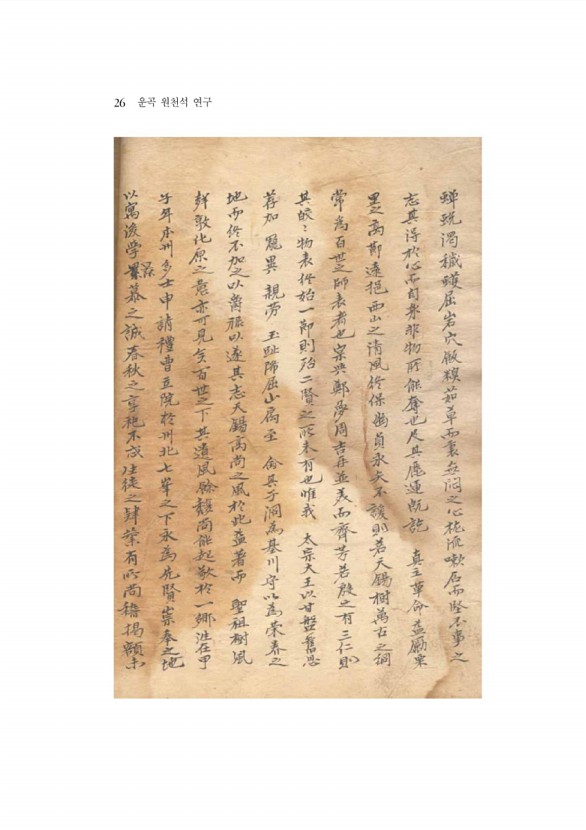 26 운곡 원천석 연구
蟬蛻濁穢蠖屈岩穴飯糗茹草而囊無悶之心枕流嗽石而堅不事之
志其得於心而自樂非物所能奪也及其歷運旣訖 眞主革命益勵栗
里之高節遠挹西山之淸風終保幽貞永矢不諼則若天錫樹萬古之綱
常爲百世之師表者也宗與鄭夢周吉再並美而齊芳若殷之有三仁則
其皎〻物表終始一節則殆二賢之所未有也惟我 太宗大王以甘盤舊恩
荐加 寵異 親勞 玉趾降屈山扃至 命其子泂爲基川守以爲榮養之
地而終不加之以菁賑以遂其志天錫高尙之風於此益著而 聖祖樹風
敎敦化原之意亦可見矣百世之下其遺風餘韻尙能起敬於一鄕往在甲
子年本州多士申請禮曹立院於州北七峯之下永爲先賢崇奉之地
以寓後學景慕之誠春秋之享祀不忒生徒之肄業有所尙稽揭額未